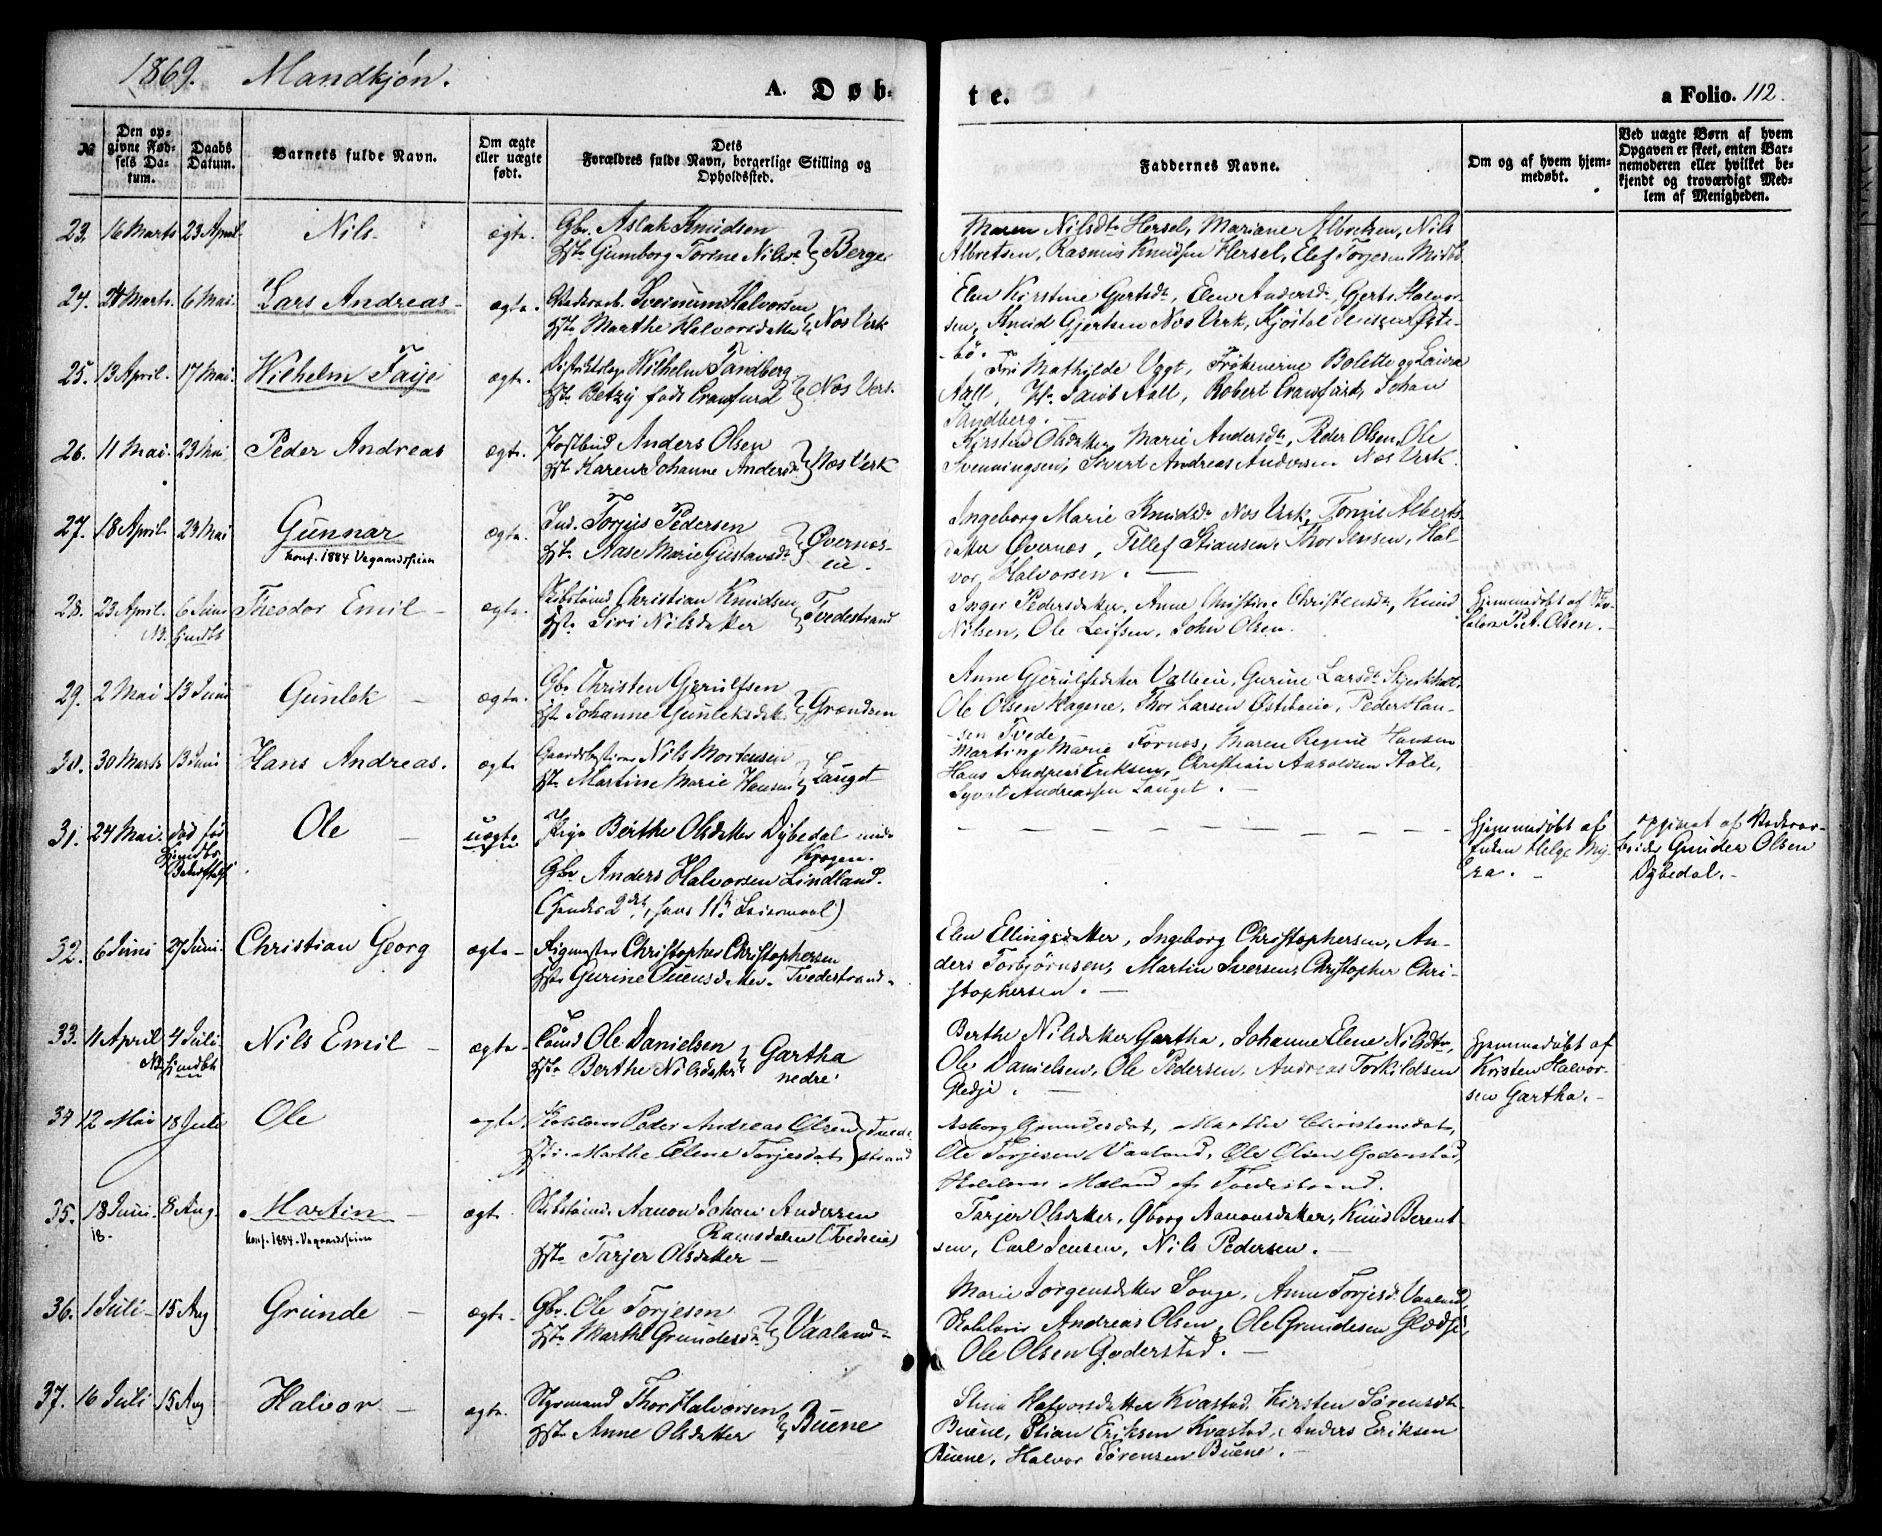 1869. Mandkjøn.
A. Døb-
te.
a Folio. 112.
№
Den op-
givne Fød-
sels Da-
tum.
Daabs
Datum.
Barnets fulde Navn.
Om ægte
eller uægte
født.
Dets
Forældres fulde Navn, borgerlige Stilling og
Opholdssted.
Faddernes Navne.
Om og af hvem hjem-
medøbt.
Ved uægte Børn af hvem
Opgaven er skeet, enten Bar-
nemoderen eller hvilket be-
kjendt og troværdigt Med-
lem af Menigheden.
23. 16 Marts 23 April Nils ægte. Gbr. Aslak Knudsen
Hst. Gumborg Torine Nilsdr. Berge
Maren Nilsdtr Hersel, Mariane Albretsen, Nils
Albretsen, Rasmus Knudsen Hersel, Elef Torjesen
24. 24 Marts. 6 Mai. Lars Andreas ægte. Sveinum Halvorsen
Hst. Marthe Halvorsdatter Næs Verk
Elen Kirstine Gertsdt, Elen Andersdt, Gerts Halvor-
sen, Knud Gjertsen Næs Verk, Kjøstol Øste-
bø.
25. 13 April. 17 Mai. Wilhelm Faije ægte. Distriktslæge Wilhelm Sandberg
Hst. Betzy født Crawfurd Næs Verk
Fru Mathilde Vogt, Frøkenerne Bolette og Laura
Aall, Hr. Jacob Aall, Robert Crawfurd, Johan
Sandberg.
26. 11 Mai. 23 Mai Peder Andreas ægte. Postbud Anders Olsen
Hst. Karen Johanne Andersdt Næs Verk
Kirstad Olsdatter, Marie Andersdt, Peder Olsen, Ole
Svenningsen, Sivert Andreas Andersen Næs Verk.
27. 18 April. 23 Mai Gunnar
konf. 1884 Vegaardsheien
ægte. Ind. Torjus Pedersen
Hst. Aase Marie Gustavsdt Øvernæs-
ei.
Ingeborg Marie Knudsdt Næs Verk, Torine Alberts-
datter Øvernæs, Tellef Stiansen, Thor Jensen, Hal-
vor Halvorsen.
28. 23 April. 6 Juni Theodor Emil ægte. Skibstømd. Christian Knudsen
NB. Hjmdbt Hst. Siri Nilsdatter Tvedestrand
Inger Pedersdatter, Anne Christine Christensdt, Knud
Nilsen, Ole Leifsen, John Olsen.
Hjemmedøbt af Sko-
lelærer P. A. Olsen.
29. 2 Mai 13 Juni Gunlek ægte. Gbr Christen Gjerulfsen
Hst. Johanne Gunleksdatter Grændsen
Anne Gjerulfsdatter Valleie, Gurine Larsdt Skjerkholt,
Ole Olsen Hagene, Thor Larsen Østebøeie, Peder Han-
sen Tvede
30. 30 Marts 13 Juni Hans Andreas. ægte Gaardsbestyrer Nils Mortensen
Hst. Martine Marie Hansen Lauget
Martine Marie Fornæs, Maren Regine Hansen
Hans Andreas Eriksen, Christian Aaroldsen Stole,
Syvert Andreassen Lauget.
31. 24 Mai. død før
Hjemdbs
Bekræftelse
Ole uægte Pige Berthe Olsdatter Dybedal
Gbr Anders Halvorsen Lindland.
(Hendes 2det, hans 1ste Leiermaal)
Hjemmedøbt af
Enken Helge My-
ra.
opgivet af Medvar-
Gunder Olsen
Dybedal.
32. 6 Juni 27 Juni Christian Georg ægte Rigmester Christopher Christophersen
Hst. Gurine Ouensdatter. Tvedestrand
Elen Ellingsdatter, Ingeborg Christophersen, An-
ders Torbjørnsen, Martin Iversen, Christopher Chri-
stophersen.
33. 11 April 4 Juli Nils Emil ægte Tømd Ole Danielsen
NB. Hjmdbt Hst. Berthe Nilsdatter Gartha
nedre
Berthe Nilsdatter Gartha, Johanne Elene Nilsdtr,
Ole Danielsen, Ole Pedersen, Andreas Torkildsen
Gledje.
Hjemmedøbt af
Kristen Halvor-
sen Gartha.
34 12 Mai 18 Juli Ole ægte Skolelærer Peder Andreas Olsen Tvede-
Hst. Marthe Elene Torjesdat strand
Asborg Grundesdat, Marthe Christensdat,
Ole Torjesen Vaaland, Ole Olsen Goderstad,
Skolelærer Mæland af Tvedestrand.
35. 18 Juni. 8 Aug. Martin
18-
konf. 1884. Vegaardsheien
ægt. Skibstømd. Aanon Johan Andersen
Ramsdalen (Tvedeeie)
Hst. Tarjer Olsdatter
Tarjer Olsdatter, Øborg Aanonsdatter, Knud Berent-
sen, Carl Jensen, Nils Pedersen.
36. 1 Juli 15 Aug Grunde ægte. Gbr. Ole Torjesen
Hst. Marthe Grundesdt Vaaland
Marie Jørgensdatter Songe, Anne Torjesd. Vaaland,
Skolelærer Andreas Olsen, Ole Grundesen Glædje,
Ole Olsen Goderstad.
37. 16 Juli 15 Aug Halvor ægte. Styrmand Thor Halvorsen
Hst. Anne Olsdatter Buene
Stina Halvorsdatter Kvastad, Kirsten Sørensdt
Buene, Stian Eriksen Kvastad, Anders Eriksen
Buene, Halvor Sørensen Buene.